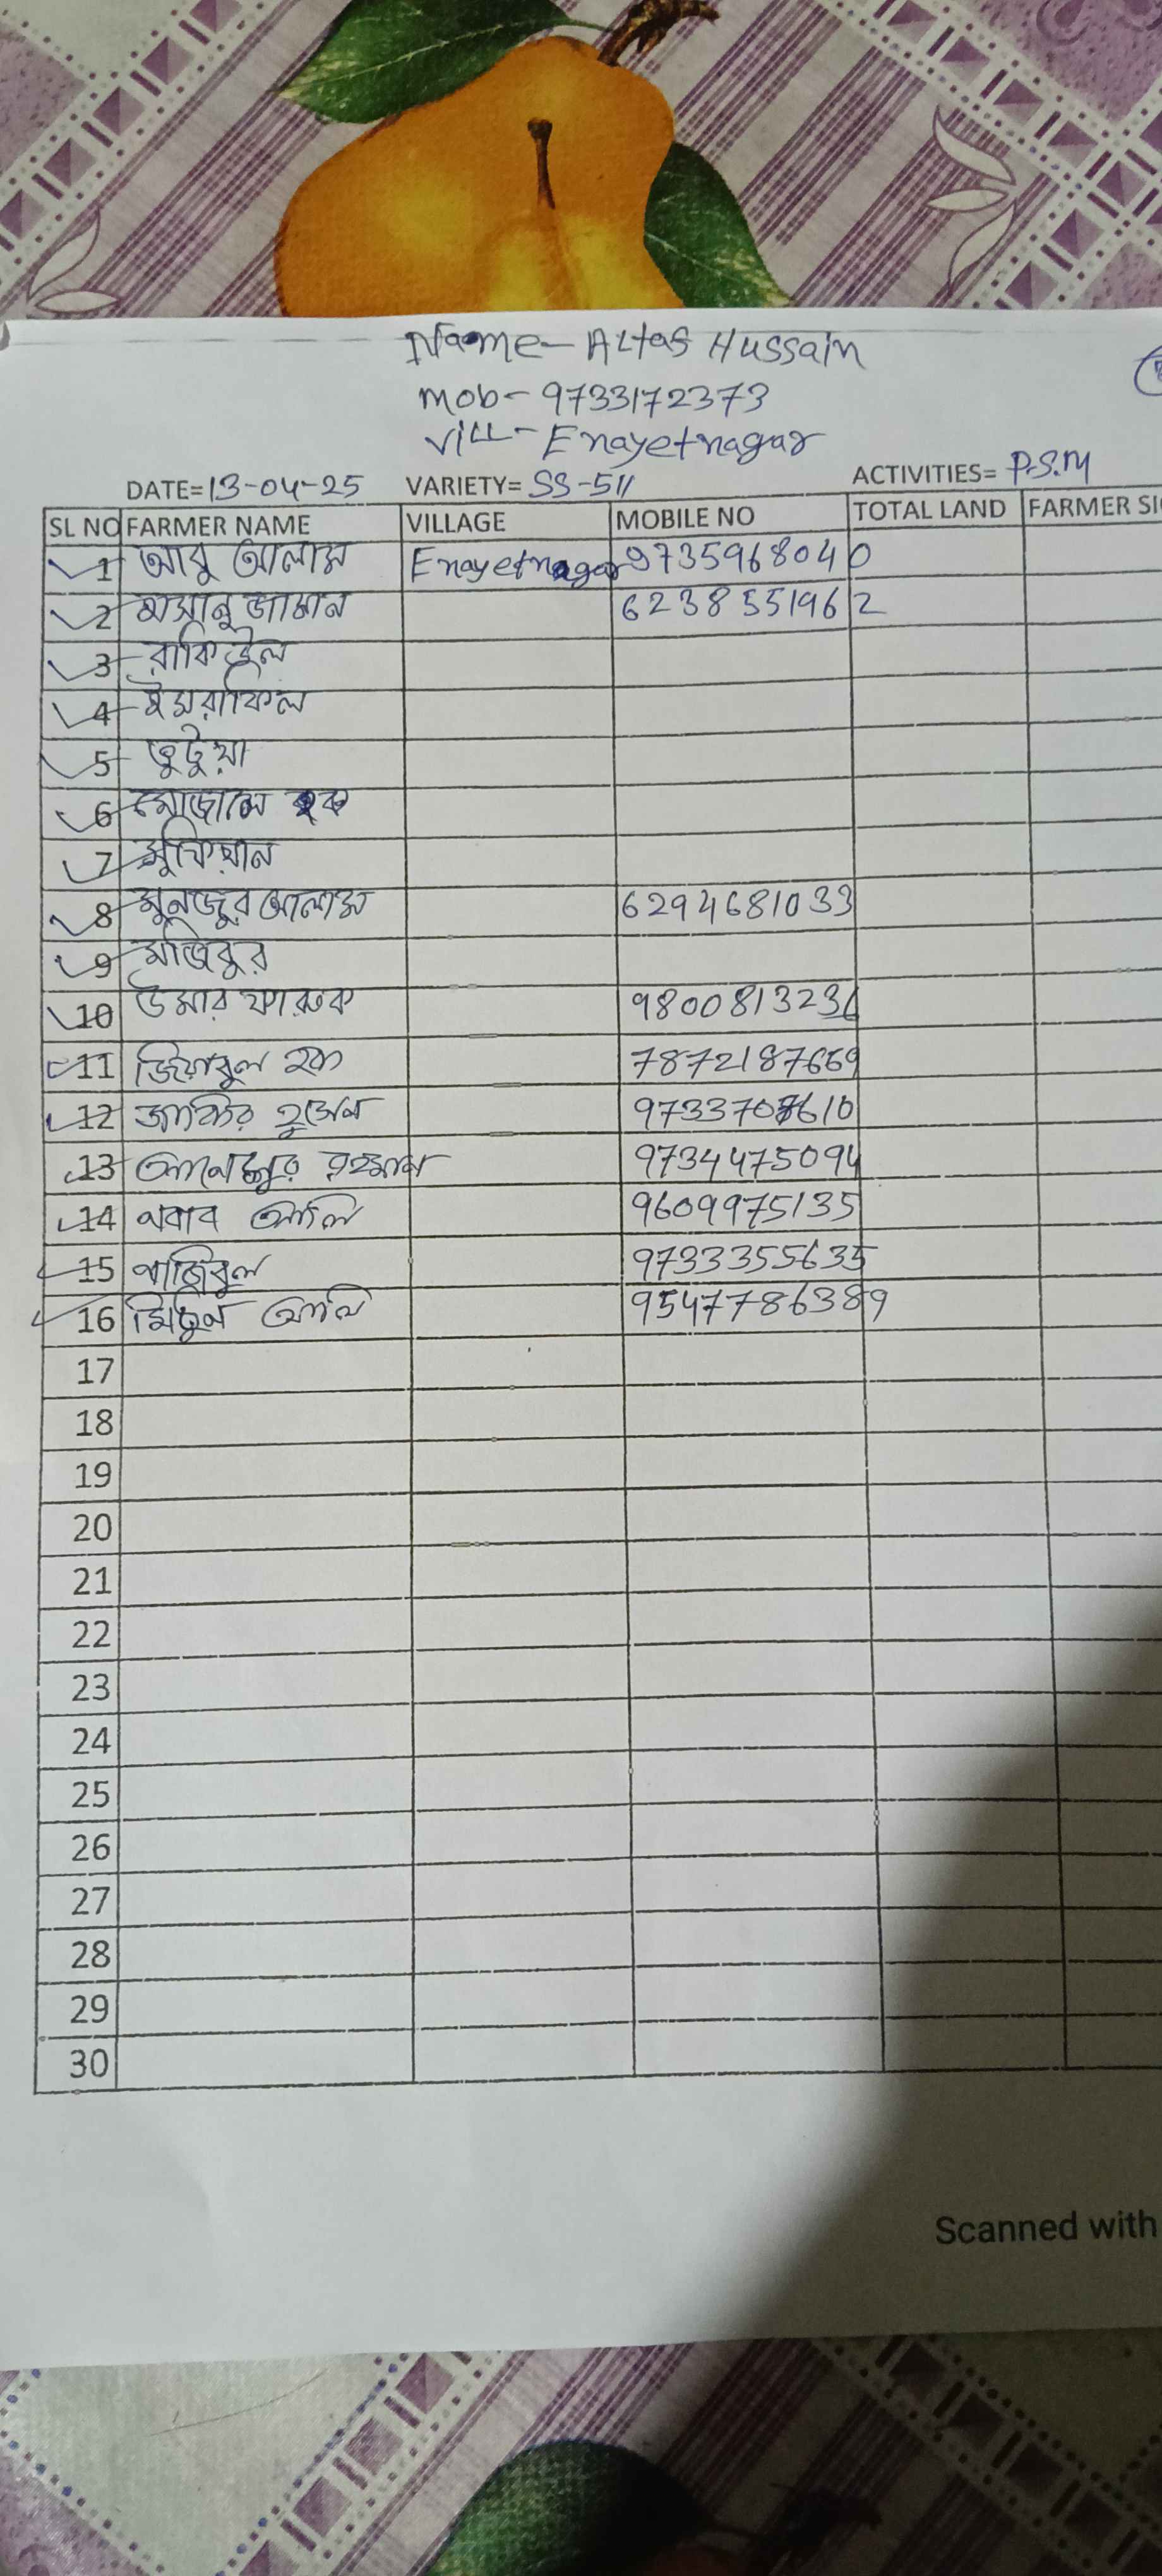 Name- Altas Hussain
mob- 9733172373
Vill- Enayetnagar
DATE=13-04-25 VARIETY= SS-511 ACTIVITIES= P.S.M
SL NO FARMER NAME VILLAGE MOBILE NO TOTAL LAND FARMER SI
1 আবু আলাম Enayetnagar 9735968040
2 মাসানুজামান 6238551962
3 রাকিউল
4 ইসরাফিল
5 ভুটুয়া
6 হক
7 সুফিয়ান
8 মুনজুর আলাম 6294681033
9 মজিবুর
10 উমার ফারুক 9800813236
11 জিয়াবুল হক 7872187669
12 জাকির হুসেন 9733708610
13 রহমান 9734475094
14 নবাব আলি 9609975135
15 9733355635
16 মিঠুন আলি 9547786389
17
18
19
20
21
22
23
24
25
26
27
28
29
30
Scanned with